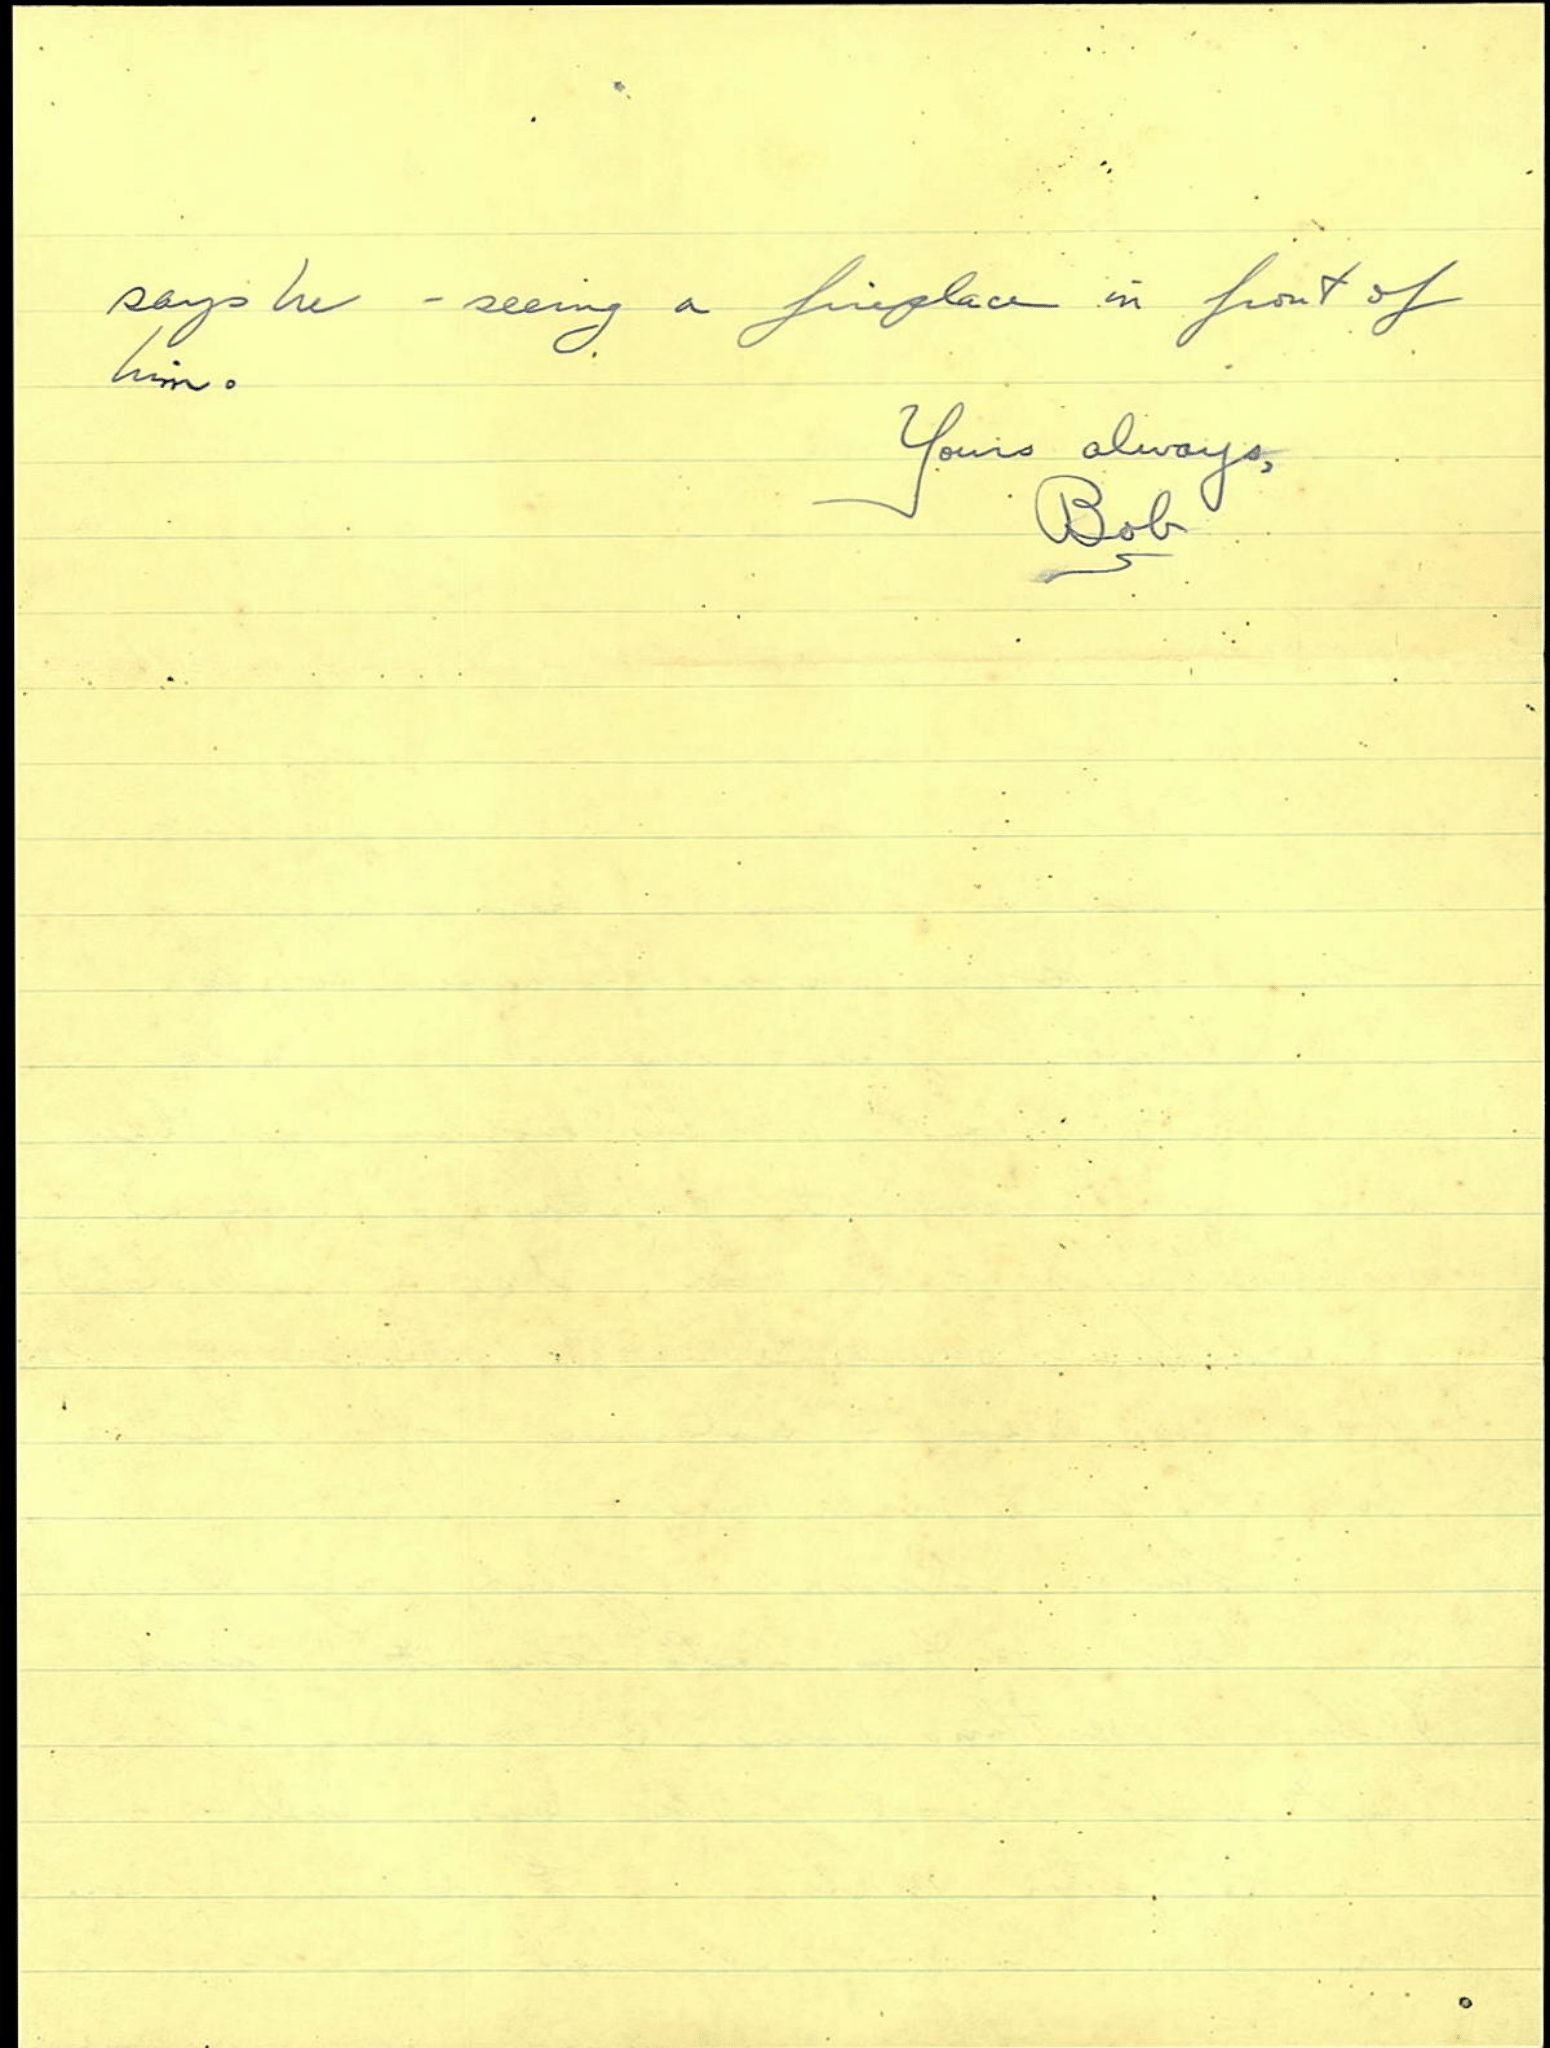 says he - seeing a fireplace in front of
him.
Yours always,
Bob